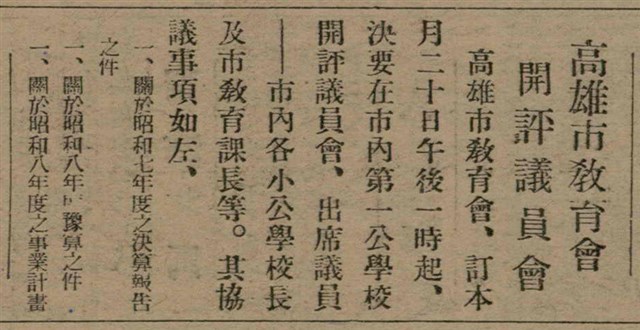 高雄市教育會
開評議員會
高雄市教育會、訂本
月二十日午後一時起、
決要在市內第一公學校
開評議員會、出席議員
——市內各小公學校長
及市教育課長等。其協
議事項如左、
一、關於昭和七年度之決算報告
之件
一、關於昭和八年度豫算之件
一、關於昭和八年度之事業計畫